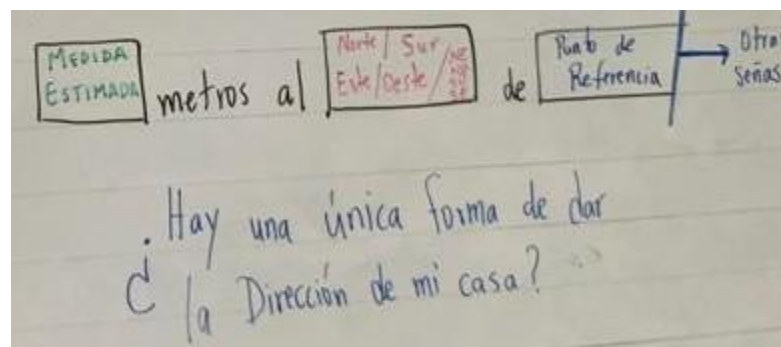 MEDIDA ESTIMADA metros al Norte / Sur Este / Oeste / de Punto de Referencia → Otras señas
¿Hay una única forma de dar
la Dirección de mi casa?